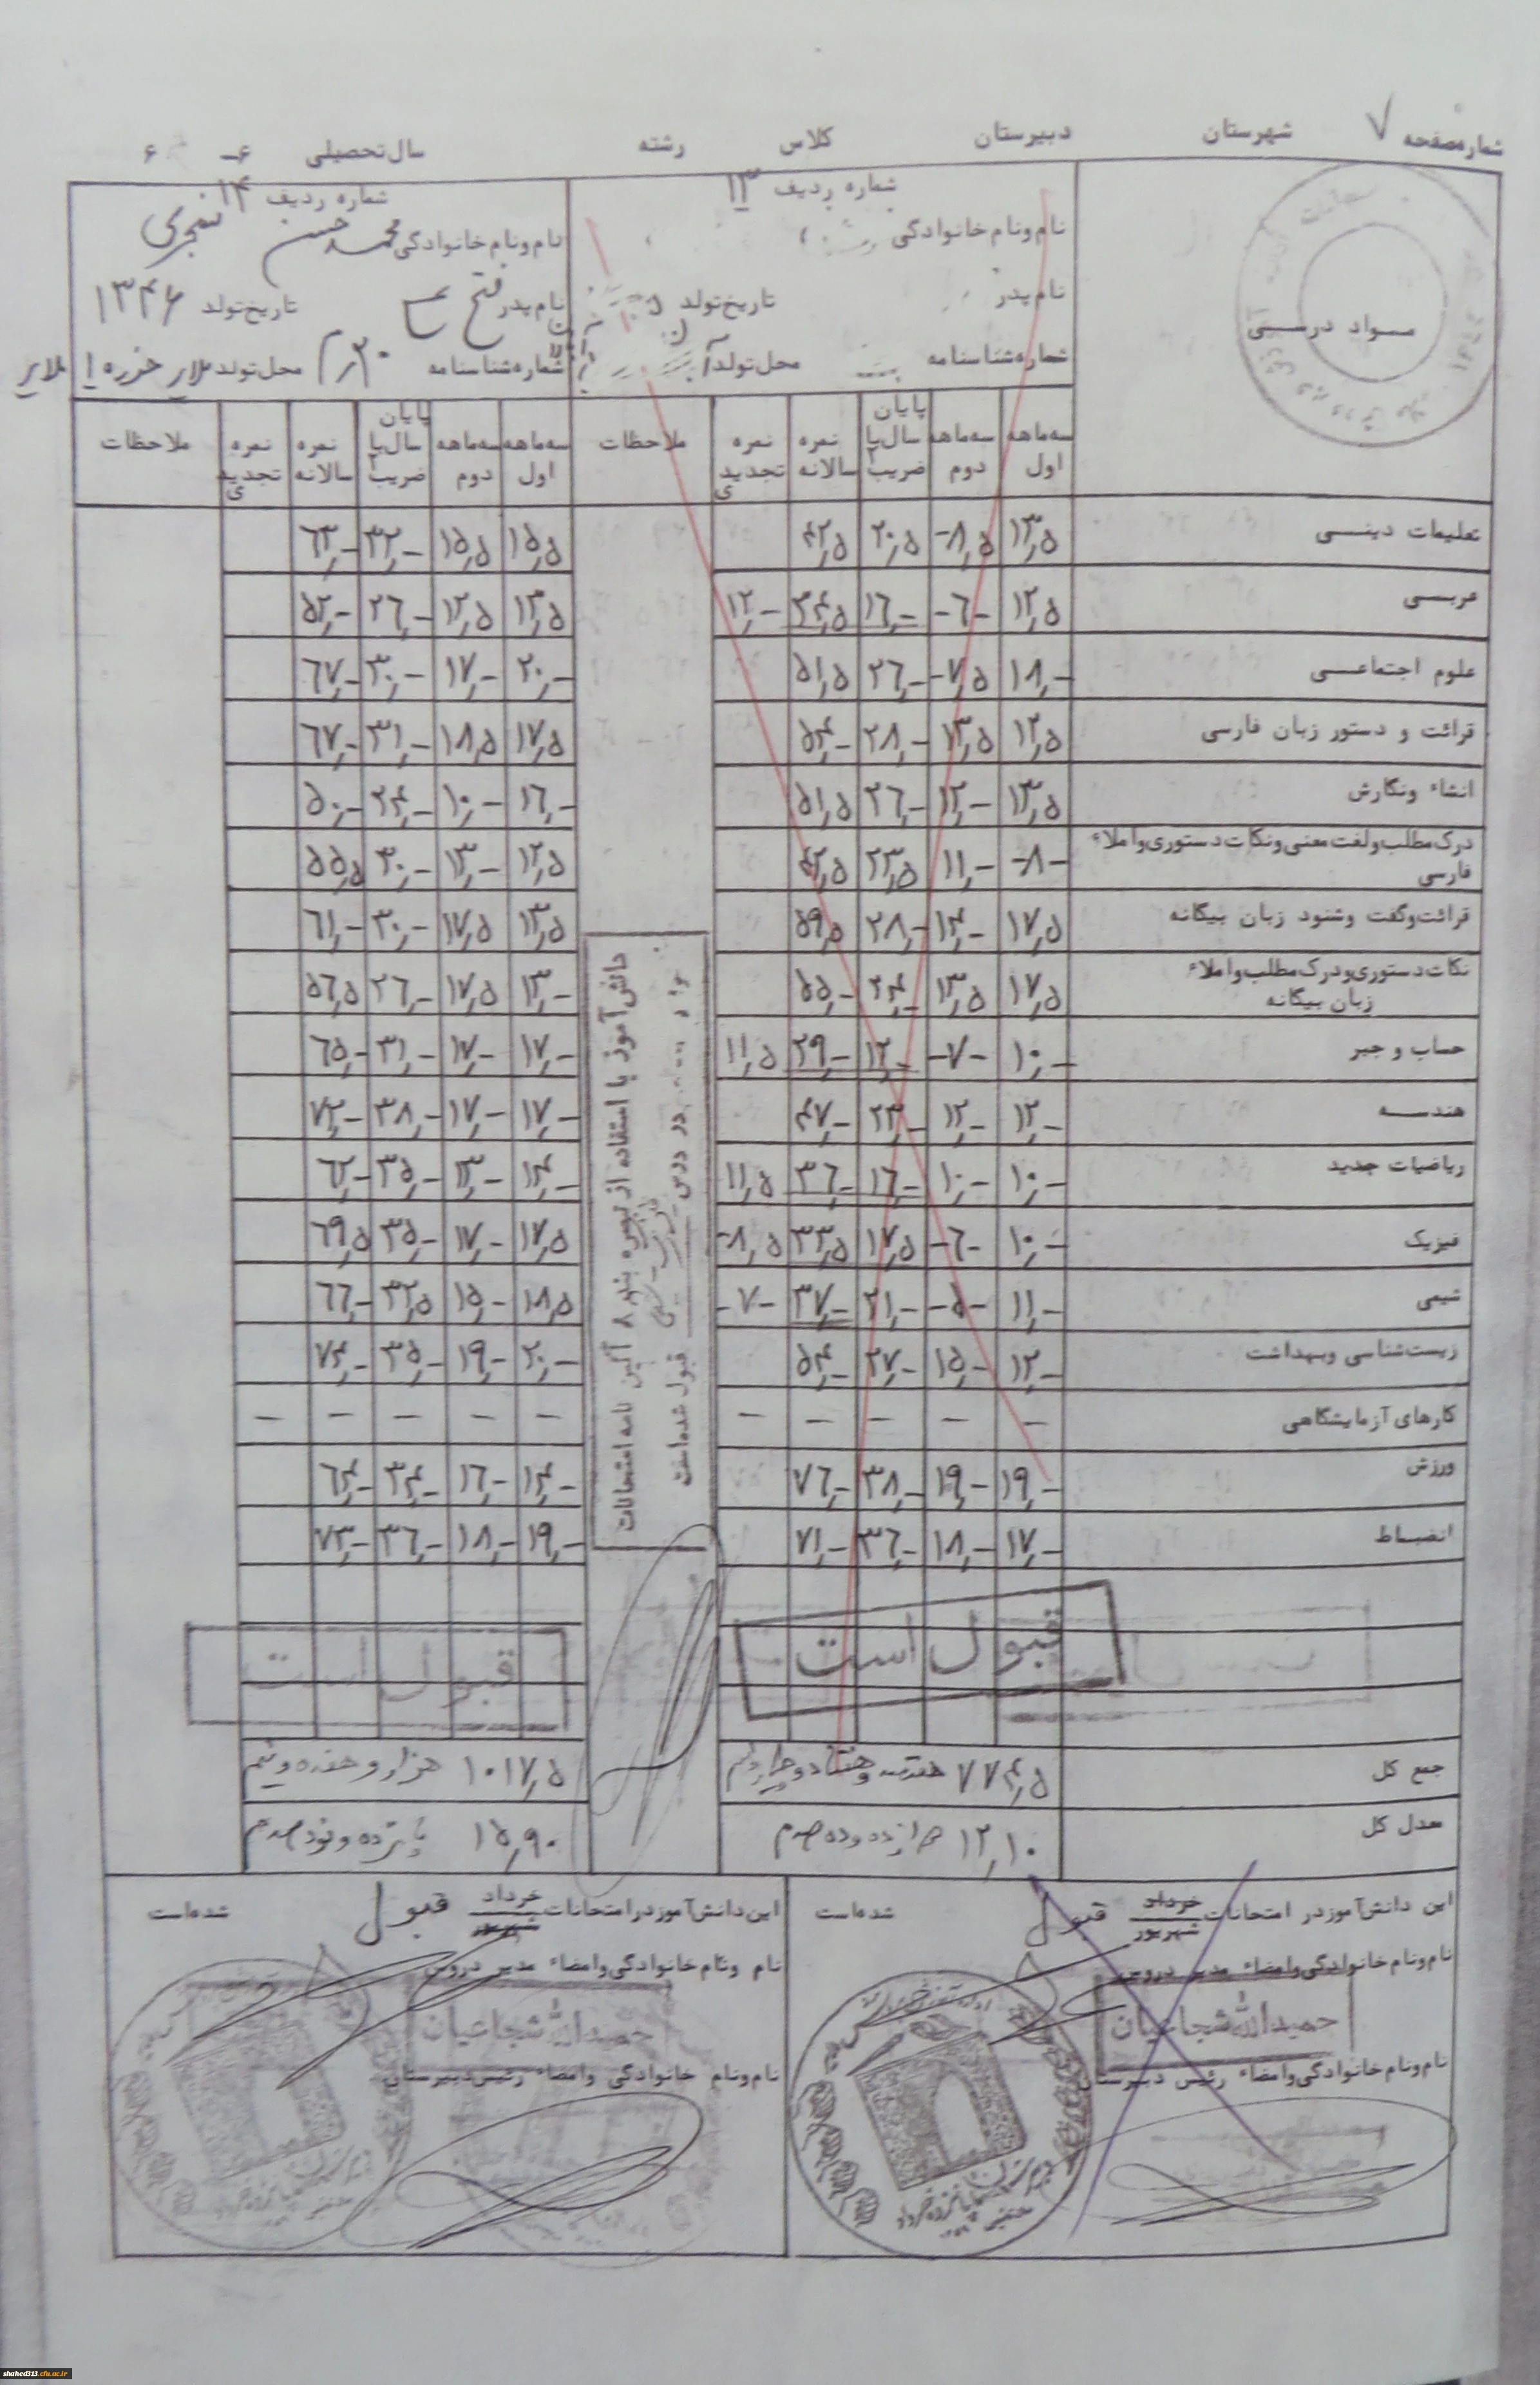 شماره صفحه ۷ شهرستان دبیرستان کلاس رشته سال تحصیلی ۶۰-
شماره ردیف ۱۳
نام و نام خانوادگی
نام پدر تاریخ تولد
شماره شناسنامه محل تولد
شماره ردیف ۱۴
نام و نام خانوادگی محمد حسن
نام پدر فتح تاریخ تولد ۱۳۴۶
شماره شناسنامه محل تولد ملایر
مواد درسی
سه ماهه اول سه ماهه دوم پایان سال با ضریب ۲ نمره سالانه نمره تجدیدی ملاحظات سه ماهه اول سه ماهه دوم پایان سال با ضریب ۲ نمره سالانه نمره تجدیدی ملاحظات
تعلیمات دینی ۱۳,۵ -۸,۵ ۲۰,۵ ۴۲,۵ ۱۵,۵ ۱۵,۵ ۳۲,- ۶۳,-
عربی ۱۲,۵ -۶- ۱۶,- ۳۴,۵ ۱۲,- ۱۳,۵ ۱۲,۵ ۲۶,- ۵۲,-
علوم اجتماعی ۱۸,- -۷,۵ ۲۶,- ۵۱,۵ ۲۰,- ۱۷,- ۳۰,- ۶۷,-
قرائت و دستور زبان فارسی ۱۲,۵ ۱۳,۵ ۲۸,- ۵۴,- ۱۷,۵ ۱۸,۵ ۳۱,- ۶۷,-
انشاء و نگارش ۱۳,۵ ۱۲,- ۲۶,- ۵۱,۵ ۱۶,- ۱۰,- ۲۴,- ۵۰,-
درک مطلب و لغت معنی و نکات دستوری و املاء فارسی -۸- ۱۱,- ۲۳,۵ ۴۲,۵ ۱۲,۵ ۱۳,- ۳۰,- ۵۵,۵
قرائت و گفت و شنود زبان بیگانه ۱۷,۵ ۱۴,- ۲۸,- ۵۹,۵ ۱۳,۵ ۱۷,۵ ۳۰,- ۶۱,-
نکات دستوری و درک مطلب و املاء زبان بیگانه ۱۷,۵ ۱۳,۵ ۲۴,- ۵۵,- ۱۳,- ۱۷,۵ ۲۶,- ۵۶,۵
حساب و جبر ۱۰,- -۷- ۱۲,- ۲۹,- ۱۱,۵ ۱۷,- ۱۷,- ۳۱,- ۶۵,-
هندسه ۱۲,- ۱۲,- ۲۳,- ۴۷,- ۱۷,- ۱۷,- ۳۸,- ۷۲,-
ریاضیات جدید ۱۰,- ۱۰,- ۱۶,- ۳۶,- ۱۱,۵ ۱۴,- ۱۳,- ۳۵,- ۶۲,-
فیزیک ۱۰,- -۶- ۱۷,۵ ۳۳,۵ -۸,۵ ۱۷,۵ ۱۷,- ۳۵,- ۶۹,۵
شیمی ۱۱,- -۵- ۲۱,- ۳۷,- -۷- ۱۸,۵ ۱۵,- ۳۲,۵ ۶۶,-
زیست شناسی و بهداشت ۱۲,- ۱۵,- ۲۷,- ۵۴,- ۲۰,- ۱۹,- ۳۵,- ۷۴,-
کارهای آزمایشگاهی - - - - - - - - - -
ورزش ۱۹,- ۱۹,- ۳۸,- ۷۶,- ۱۴,- ۱۶,- ۳۴,- ۶۴,-
انضباط ۱۷,- ۱۸,- ۳۶,- ۷۱,- ۱۹,- ۱۸,- ۳۶,- ۷۳,-
دانش آموز با استفاده از تبصره بند ۸ آئین نامه امتحانات
در درس فیزیک - شیمی قبول شده است
قبول است
قبول است
جمع کل ۷۷۴,۵ هفتصد و هفتاد و چهار و نیم ۱۰۱۷,۵ هزار و هفده و نیم
معدل کل ۱۲,۱۰ دوازده و ده صدم ۱۵,۹۰ پانزده و نود صدم
این دانش آموز در امتحانات خرداد شهریور قبول شده است
نام و نام خانوادگی و امضاء مدیر دروس
حمیدالله شجاعیان
نام و نام خانوادگی و امضاء رئیس دبیرستان
این دانش آموز در امتحانات خرداد شهریور قبول شده است
نام و نام خانوادگی و امضاء مدیر دروس
حمیدالله شجاعیان
نام و نام خانوادگی و امضاء رئیس دبیرستان
shahed313.cfu.ac.ir